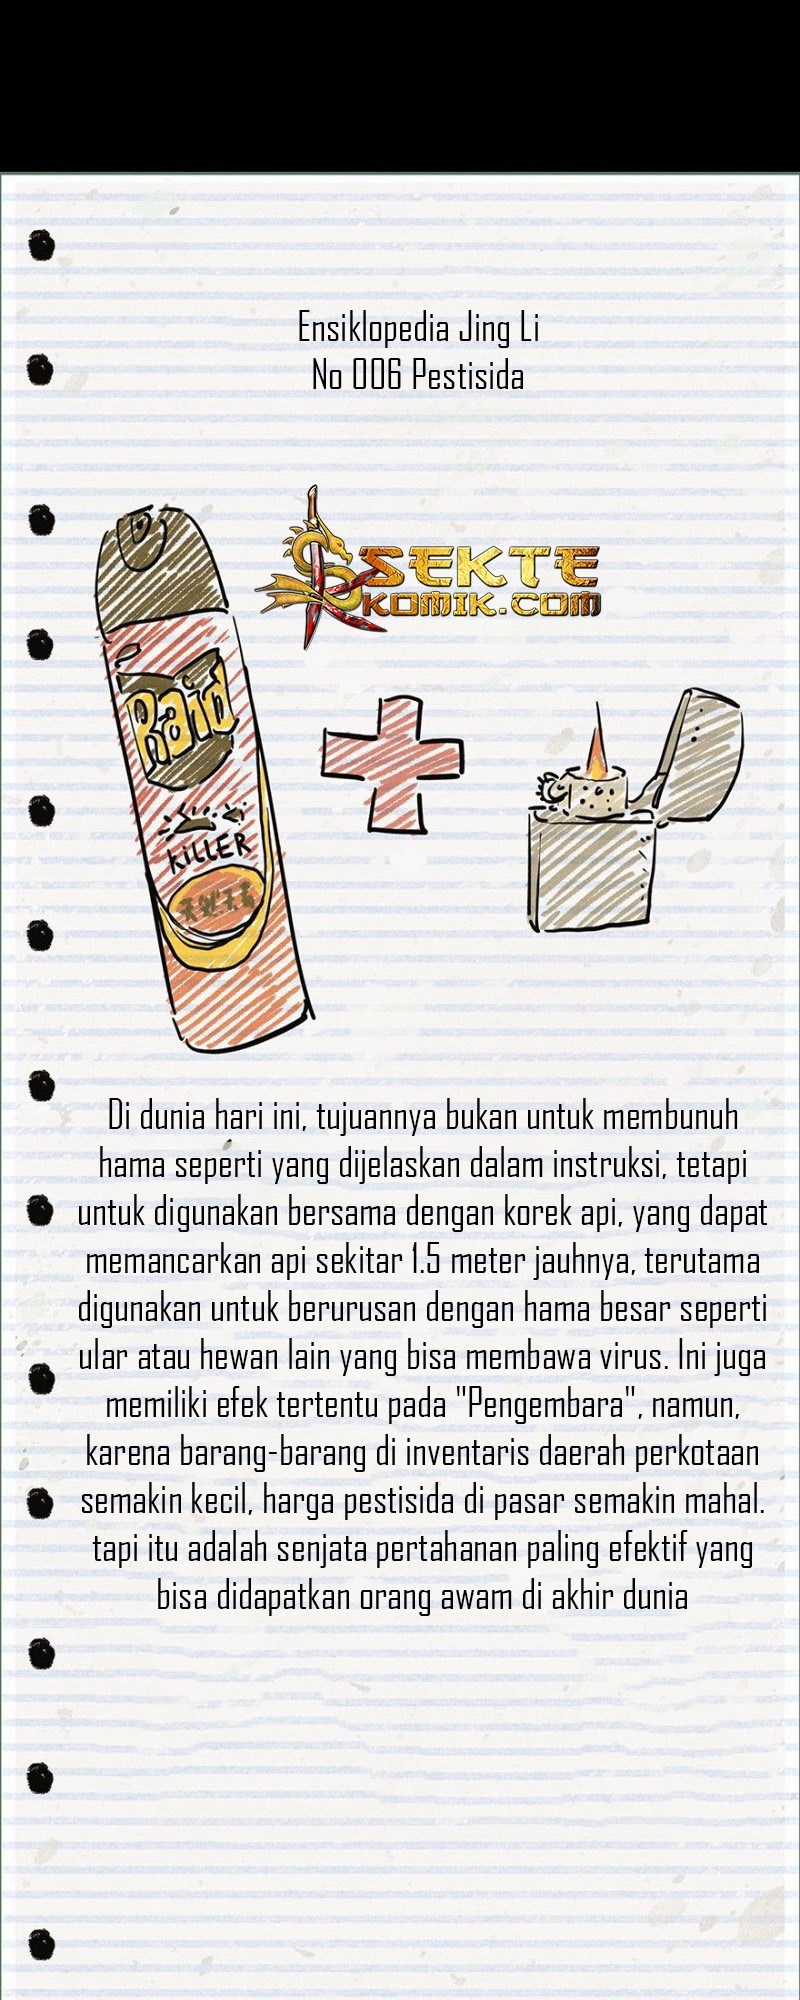 Ensiklopedia Jing Li
No 006 Pestisida
SEKTE
KOMIK.COM
Raid
KILLER
Di dunia hari ini, tujuannya bukan untuk membunuh
hama seperti yang dijelaskan dalam instruksi, tetapi
untuk digunakan bersama dengan korek api, yang dapat
memancarkan api sekitar 1.5 meter jauhnya, terutama
digunakan untuk berurusan dengan hama besar seperti
ular atau hewan lain yang bisa membawa virus. Ini juga
memiliki efek tertentu pada "Pengembara", namun,
karena barang-barang di inventaris daerah perkotaan
semakin kecil, harga pestisida di pasar semakin mahal.
tapi itu adalah senjata pertahanan paling efektif yang
bisa didapatkan orang awam di akhir dunia